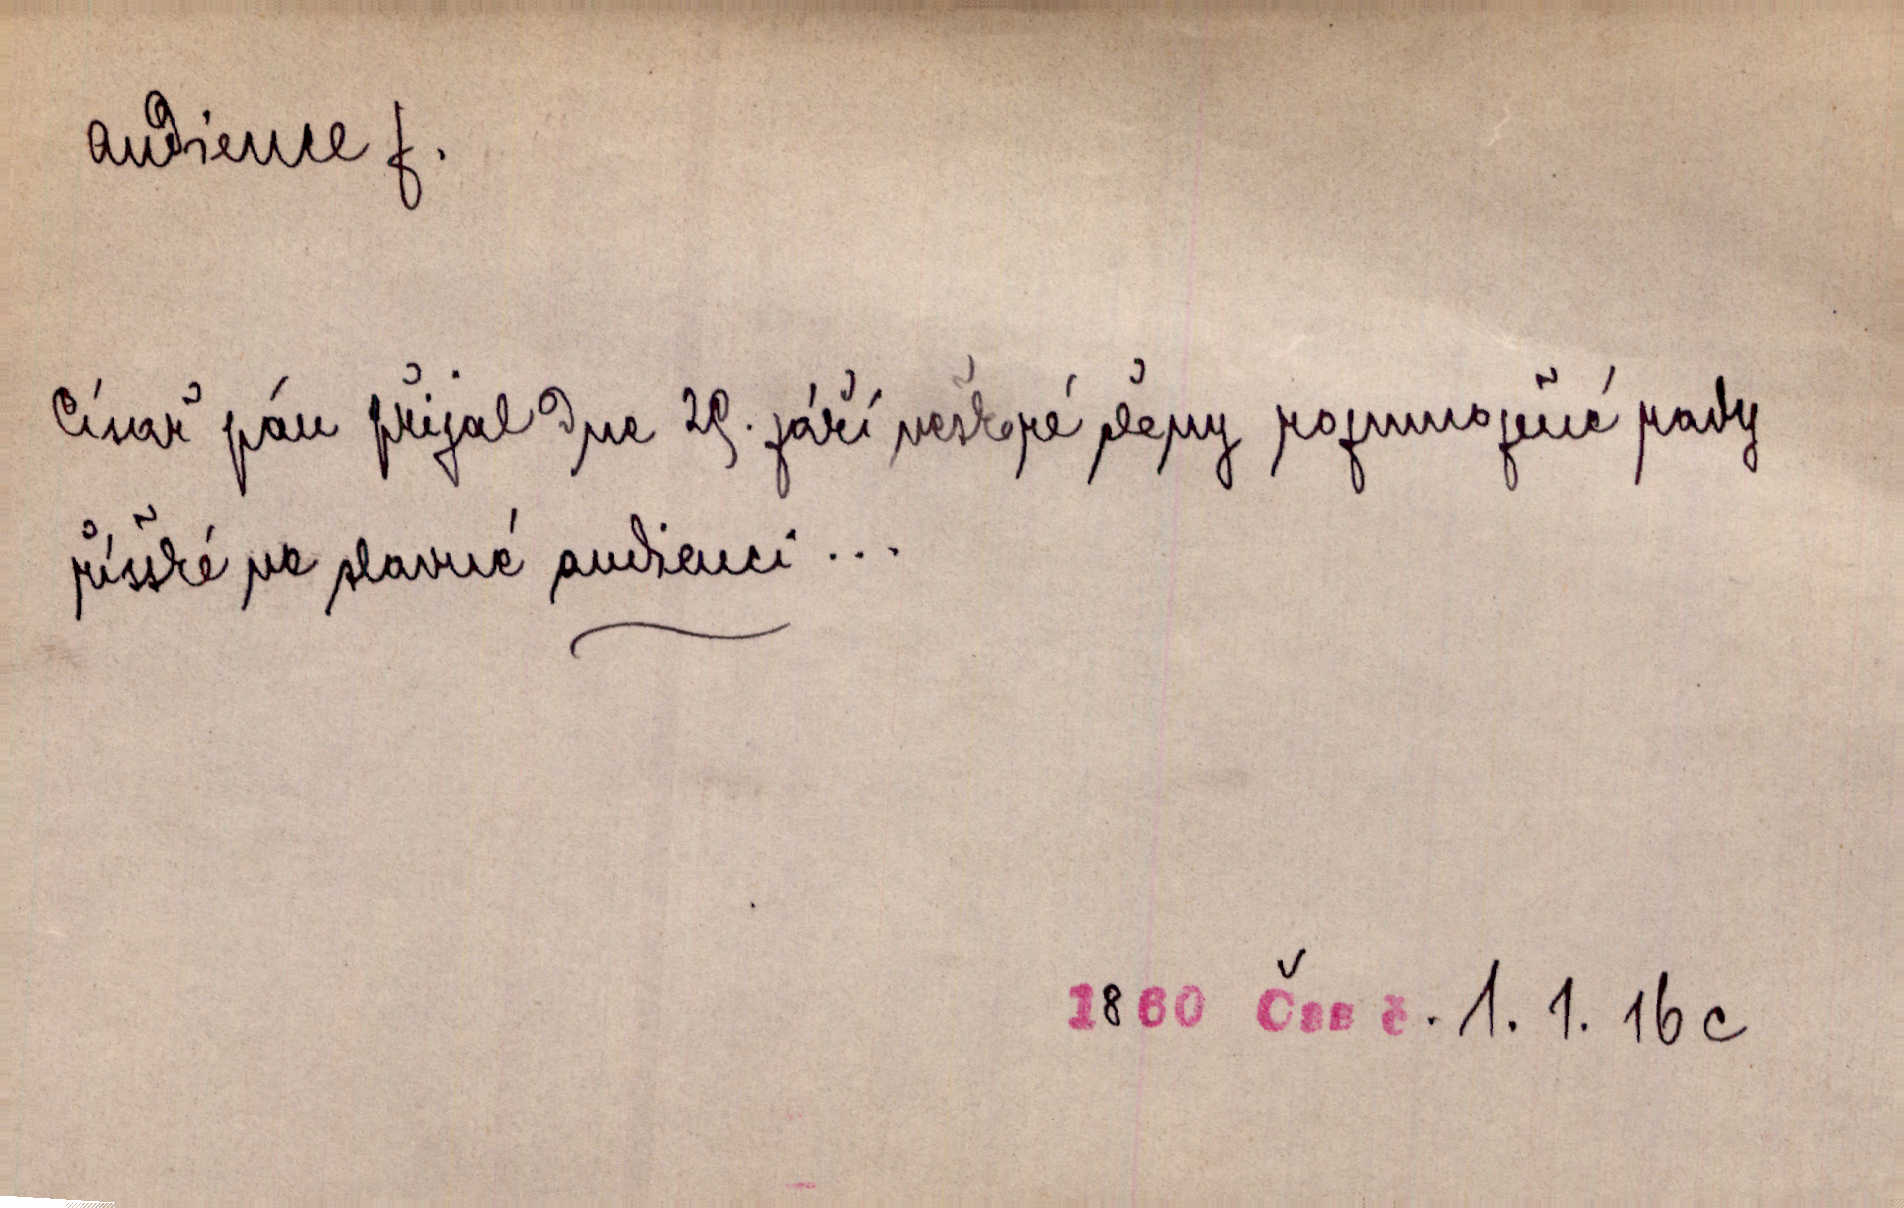 audience f.
Císař pán přijal dne 29. září veškeré členy rozmnožené rady
říšské ve slavné audienci ...
1860 Čas č. 1. 1. 16 c